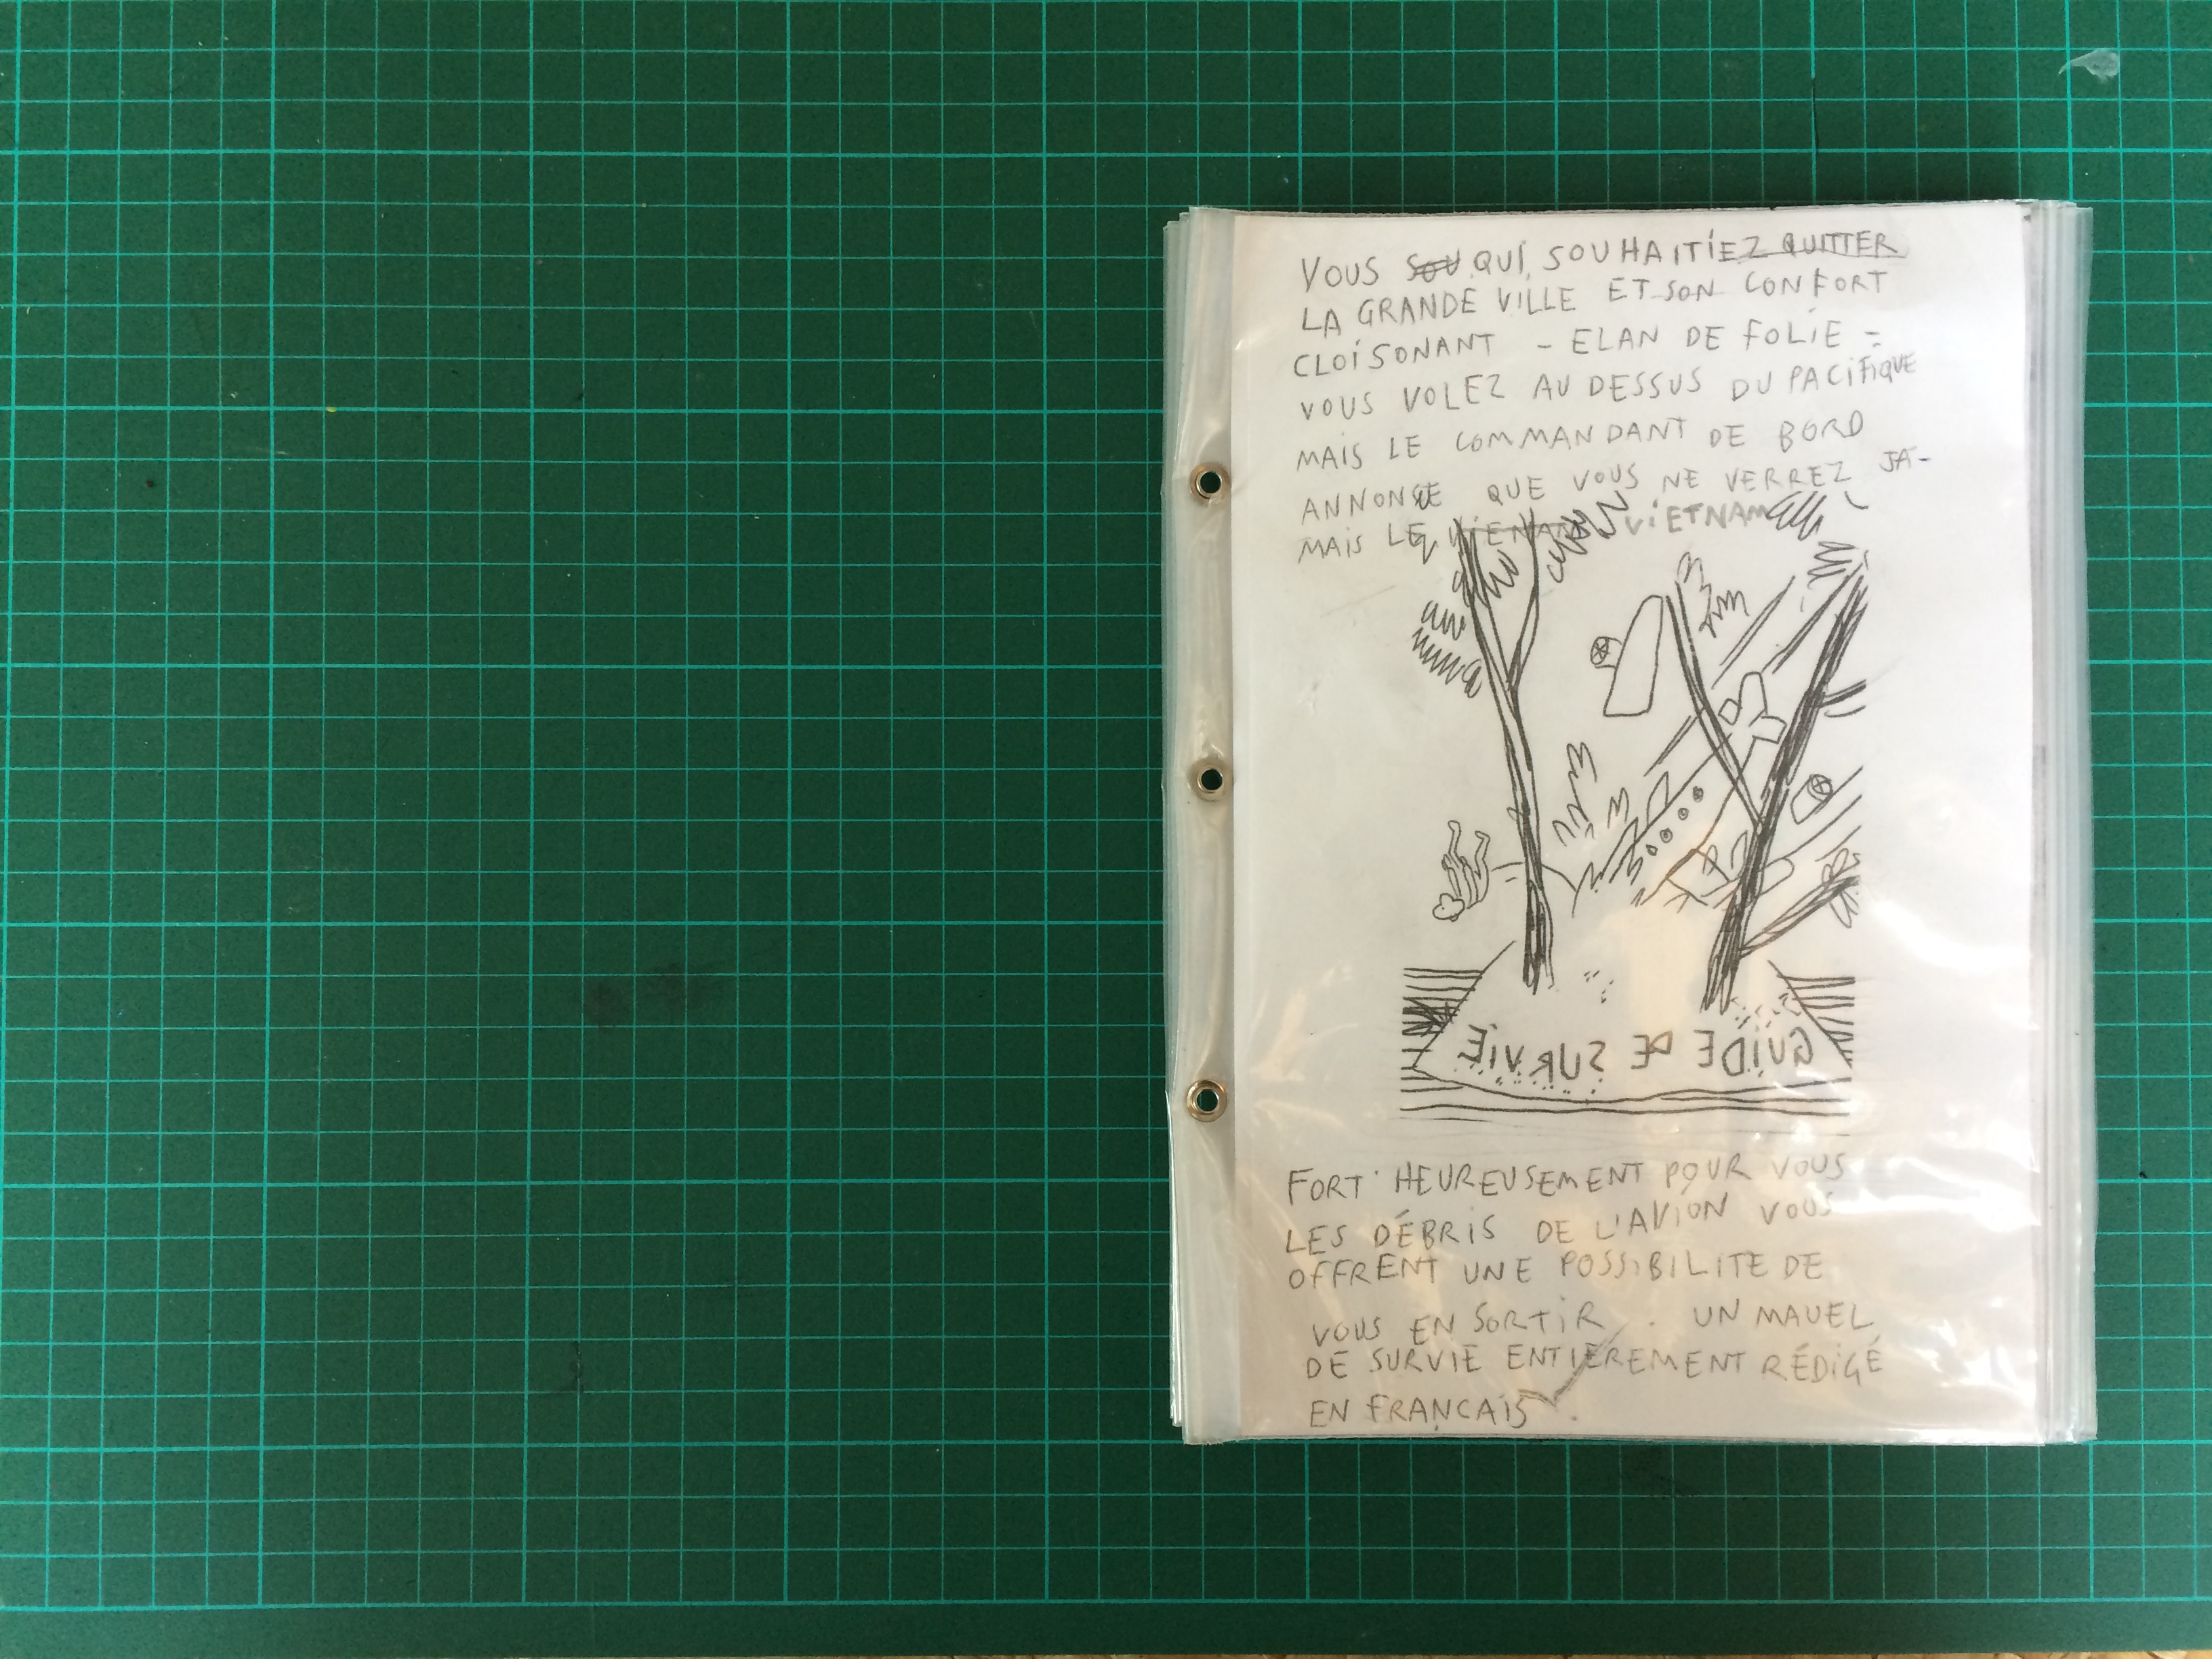 VOUS SOU QUI SOUHAITIEZ QUITTER
LA GRANDE VILLE ET SON CONFORT
CLOISONANT - ELAN DE FOLIE -
VOUS VOLEZ AU DESSUS DU PACIFIQUE
MAIS LE COMMANDANT DE BORD
ANNONCE QUE VOUS NE VERREZ JA-
MAIS LE VIETNAM
GUIDE DE SURVIE
FORT HEUREUSEMENT POUR VOUS
LES DÉBRIS DE L'AVION VOUS
OFFRENT UNE POSSIBILITE DE
VOUS EN SORTIR . UN MAUEL
DE SURVIE ENTIEREMENT RÉDIGÉ
EN FRANÇAIS .